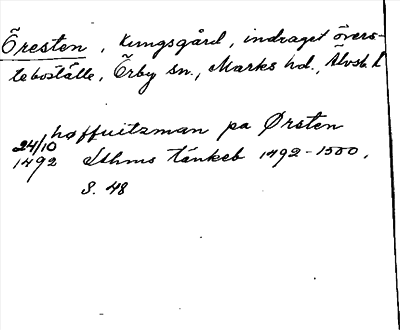 Öresten, kungsgård, indraget övers-
teboställe, Örby sn., Marks hd., Älvsb. l
høffuitzman pa Ørsten
24/10
1492 Sthms tänkeb 1492-1500,
S. 48